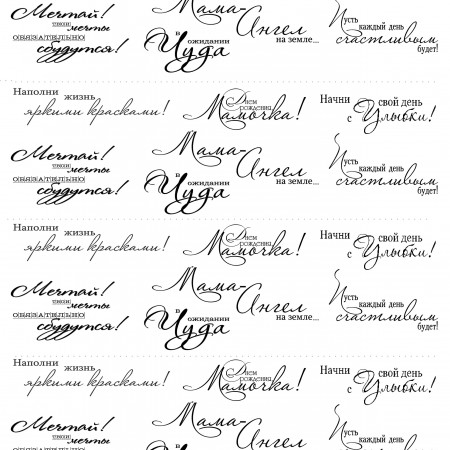 Мечтай!
твои
мечты
ОБЯЗАТЕЛЬНО
сбудутся!
в
ожидании
Чуда
Мама-
Ангел
на земле...
Пусть
каждый день
счастливым
будет!
Наполни
жизнь
яркими красками!
Днем
рождения,
Мамочка!
Начни
свой день
с Улыбки!
Мечтай!
твои
мечты
ОБЯЗАТЕЛЬНО
сбудутся!
в
ожидании
Чуда
Мама-
Ангел
на земле...
Пусть
каждый день
счастливым
будет!
Наполни
жизнь
яркими красками!
Днем
рождения,
Мамочка!
Начни
свой день
с Улыбки!
Мечтай!
твои
мечты
ОБЯЗАТЕЛЬНО
сбудутся!
в
ожидании
Чуда
Мама-
Ангел
на земле...
Пусть
каждый день
счастливым
будет!
Наполни
жизнь
яркими красками!
Днем
рождения,
Мамочка!
Начни
свой день
с Улыбки!
Мечтай!
твои
мечты
в
ожидании
Чуда
Мама-
Ангел
Пусть
каждый день
счастливым